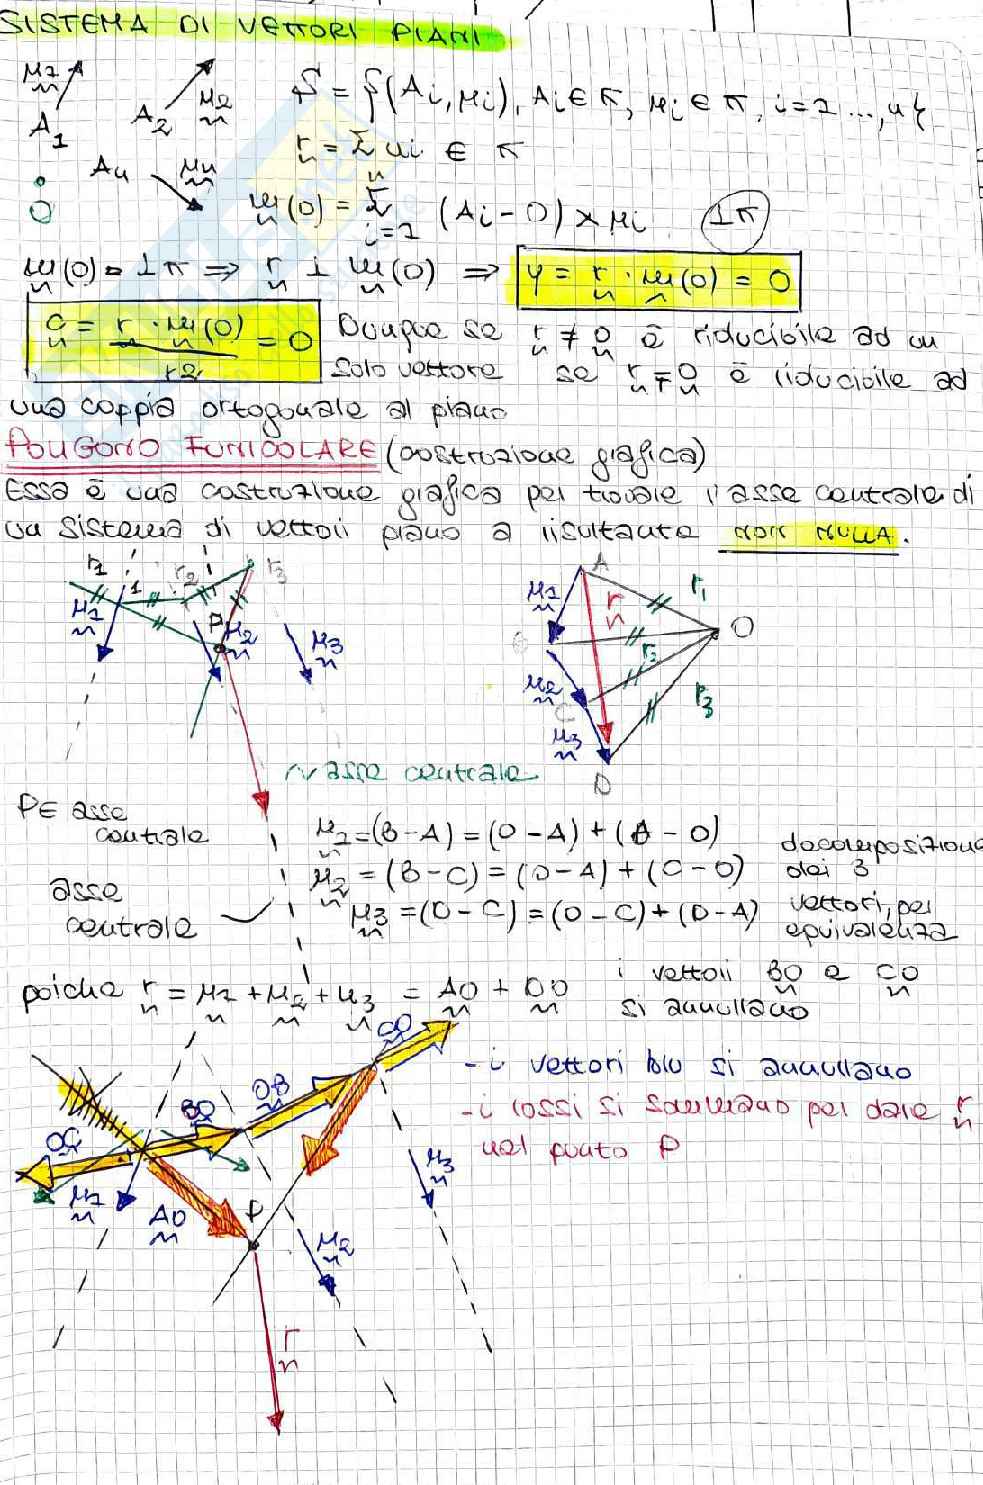 SISTEMA DI VETTORI PIANI
u1 A1
A2 u2
S = {(Ai, ui), Ai ∈ π, ui ∈ π, i=1 ..., n}
r = Σ ui ∈ π
An un
m(0) = Σ i=1 n (Ai - O) × ui ⊥π
m(0) ⊥ π ⇒ r ⊥ m(0) ⇒ γ = r · m(0) = 0
a = r · m(0) / r2 = 0 Dunque se r ≠ 0 è riducibile ad un
solo vettore se r = 0 è riducibile ad
una coppia ortogonale al piano
POLIGONO FUNICOLARE (costruzione grafica)
Essa è una costruzione grafica per trovare l'asse centrale di
un sistema di vettori piano a risultante NON NULLA.
r1 1 r2 r3
u1 P u2 u3
A u1 r r1 O
B r2
u2 C r3
u3 D
asse centrale
P∈ asse
centrale
u2 = (B-A) = (O-A) + (B-O) decomposizione
u2 = (B-C) = (O-A) + (C-O) dei 3
u3 = (D-C) = (O-C) + (D-A) vettori, per
equivalenza
asse
centrale
poiche r = u1 + u2 + u3 = AO + DO i vettori BO e CO
si annullano
CO
- i vettori blu si annullano
OB
BO
- i rossi si sommano per dare r
nel punto P
OC
u1
AO
P
u2
u3
r